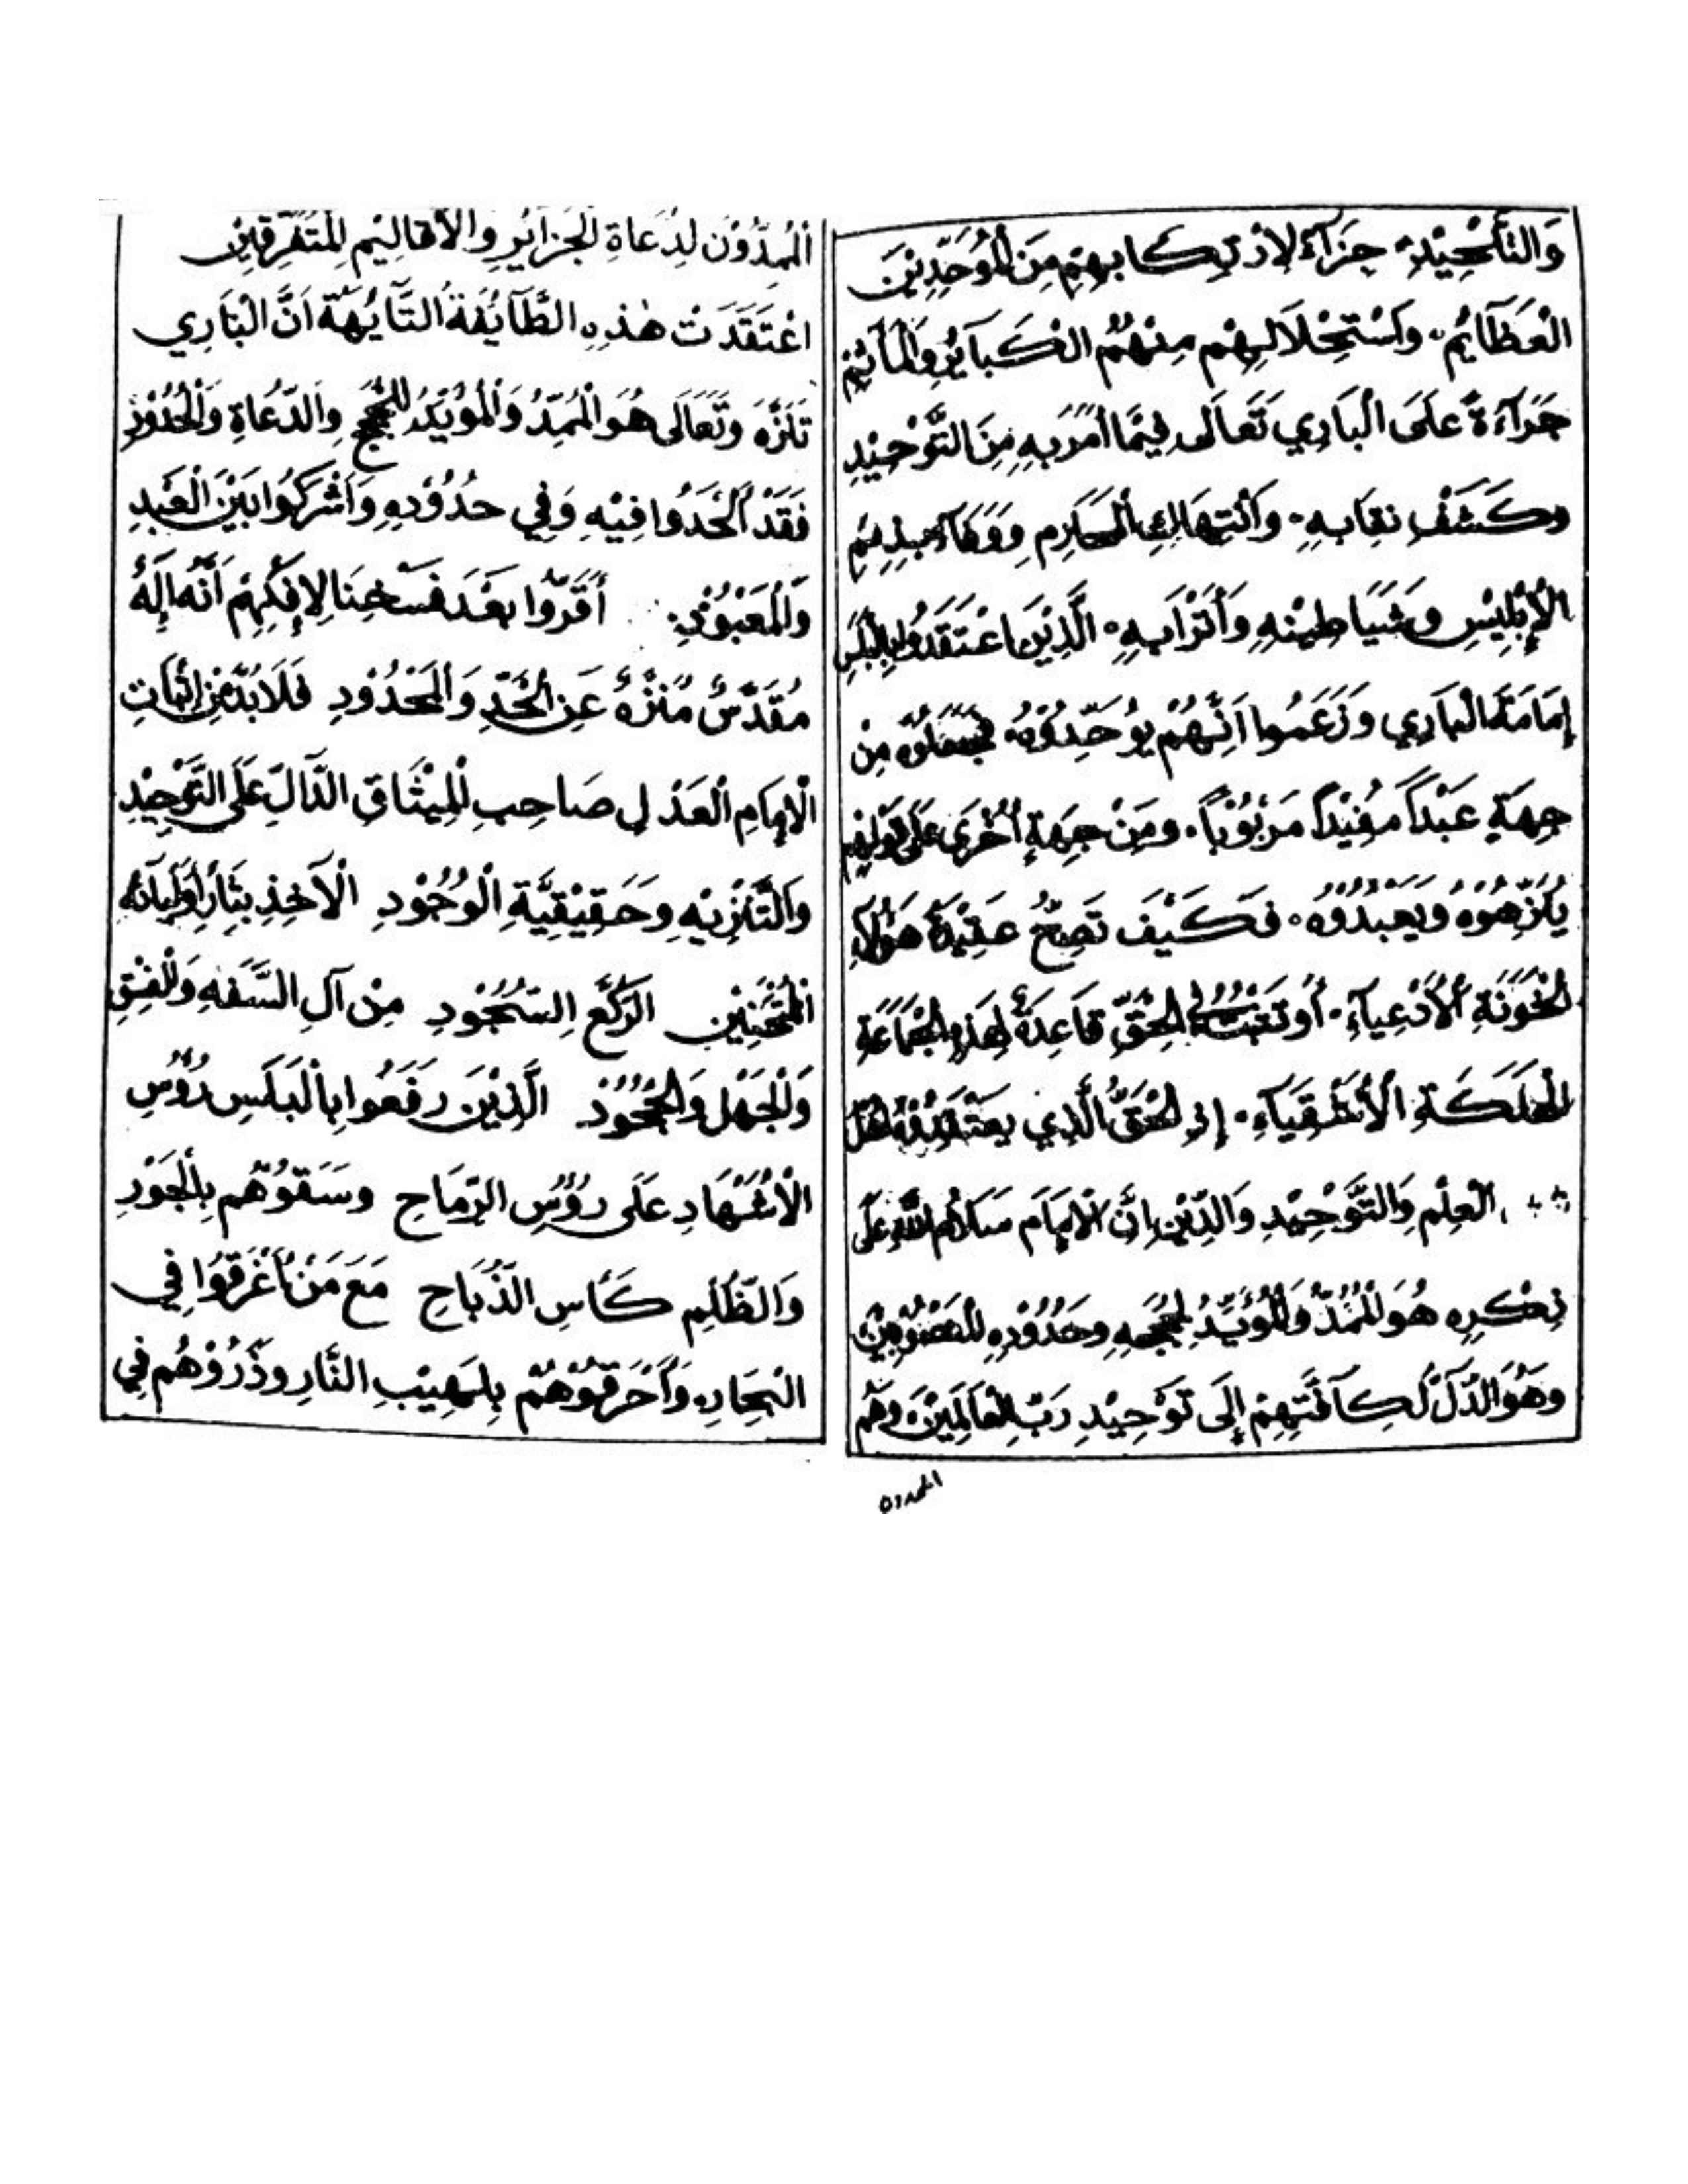 وَالتَّأْحِيْدِ جَزَآءً لِارْتِكَابِهِمْ مِنَ الْمُوَحِّدِيْنَ
الْعَظَآئِمُ وَاسْتِحْلَالِهِمْ مِنْهُمُ الْكَبَآئِرُ وَالْمَأَثِمُ
جَرَآءَةً عَلَى الْبَارِي تَعَالَى فِيْمَا أَمَرَ بِهِ مِنَ التَّوْحِيْدِ
وَكَشْفِ نِقَابِهِ وَانْتِهَاكِ الْمَحَارِمِ
الْإِبْلِيْسِ وَشَيَاطِيْنِهِ وَأَتْرَابِهِ الَّذِيْنَ اعْتَقَدُوا
إِمَامَةَ الْبَارِي وَزَعَمُوا اَنَّهُمْ يُوَحِّدُوْهُ فَجَعَلُوْهُ مِنْ
جِهَةٍ عَبْداً مُفِيْداً مَرْبُوْباً وَمِنْ جِهَةٍ أُخْرَى عَلَى قَوْلِهِمْ
يُنَزِّهُوْهُ وَيَعْبُدُوْهُ فَكَيْفَ تَصِحُّ عَقِيْدَةُ هَؤُلَآءِ
الْخَوَنَةِ الْأَدْعِيَآءِ أَوْ تَثْبُتُ فِي الْحَقِّ قَاعِدَةٌ لِهَذِهِ الْجَمَاعَةِ
الْهَلَكَةِ الْأَشْقِيَآءِ إِذِ الْحَقُّ الَّذِي يَعْتَقِدُهُ أَهْلُ
الْعِلْمِ وَالتَّوْحِيْدِ وَالدِّيْنِ اِنَّ الْإِمَامَ سَلَامُ اللَّهِ عَلَى
ذِكْرِهِ هُوَ الْمُمِدُّ وَالْمُؤَيِّدُ لِحُجَجِهِ وَحُدُوْدِهِ الْمَنْصُوْبِيْنَ
وَهُوَ الدَّالُّ لِكَآفَّتِهِمْ إِلَى تَوْحِيْدِ رَبِّ الْعَالَمِيْنَ وَهُمُ
الممدون
الْمُمِدُّوْنَ لِدُعَاةِ الْجَزَائِرِ وَالْأَقَالِيْمِ الْمُتَفَرِّقِيْنَ
اعْتَقَدَتْ هٰذِهِ الطَّآئِفَةُ التَّآئِهَةُ اَنَّ الْبَارِي
تَنَزَّهَ وَتَعَالَى هُوَ الْمُمِدُّ وَالْمُؤَيِّدُ لِلْحُجَجِ وَالدُّعَاةِ وَالْحُدُوْدِ
فَقَدْ أَلْحَدُوا فِيْهِ وَفِي حُدُوْدِهِ وَاَشْرَكُوا بَيْنَ الْعَبْدِ
وَالْمَعْبُوْدِ أَقَرُّوا بَعْدَ فَسْخِنَا لِإِفْكِهِمْ اَنَّهُ إِلَهٌ
مُقَدَّسٌ مُنَزَّهٌ عَنِ الْحَدِّ وَالْمَحْدُوْدِ فَلَا بُدَّ مِنْ إِثْبَاتِ
الْإِمَامِ الْعَدْلِ صَاحِبِ الْمِيْثَاقِ الدَّالِّ عَلَى التَّوْحِيْدِ
وَالتَّنْزِيْهِ وَحَقِيْقِيَّةِ الْوُجُوْدِ الْآخِذِ بِثَأْرِ أَوْلِيَآئِهِ
الْمُمْتَحَنِيْنَ الرُّكَّعِ السُّجُوْدِ مِنْ آلِ السَّفَهِ وَالْفِسْقِ
وَالْجَهْلِ وَالْجُحُوْدِ الَّذِيْنَ رَفَعُوا بِالْبَلَسِ رُؤُسِ
الْأَشْهَادِ عَلَى رُؤُسِ الرِّمَاحِ وَسَقَوْهُمْ بِالْجَوْرِ
وَالظُّلْمِ كَأْسِ الذُّبَاحِ مَعَ مَنْ أَغْرَقُوا فِي
الْبِحَارِ وَأَحْرَقُوْهُمْ بِلَهِيْبِ النَّارِ وَذَرُوْهُمْ فِي